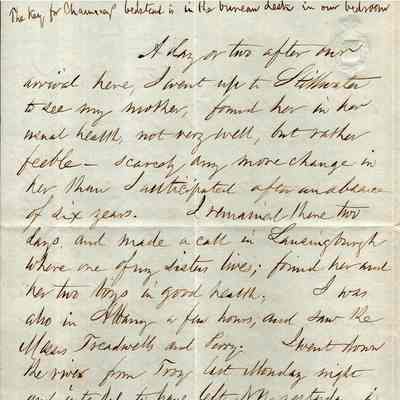 The Key for Chauncey bedstead is in the bureau desk in our bedroom
A day or two after our
arrival here, I went up to Stillwater
to see my mother, found her in her
usual health, not very well, but rather
feeble — scarcely any more change in
her than I anticipated after an absence
of six years. I remained there two
days, and made a call in Lansingburgh
where one of my sisters lives; found her and
her two boys in good health. I was
also in Albany a few hours, and saw the
Treadwells and Perry. I went down
the river from Troy last Monday night
and intended to have left N.Y. yesterday